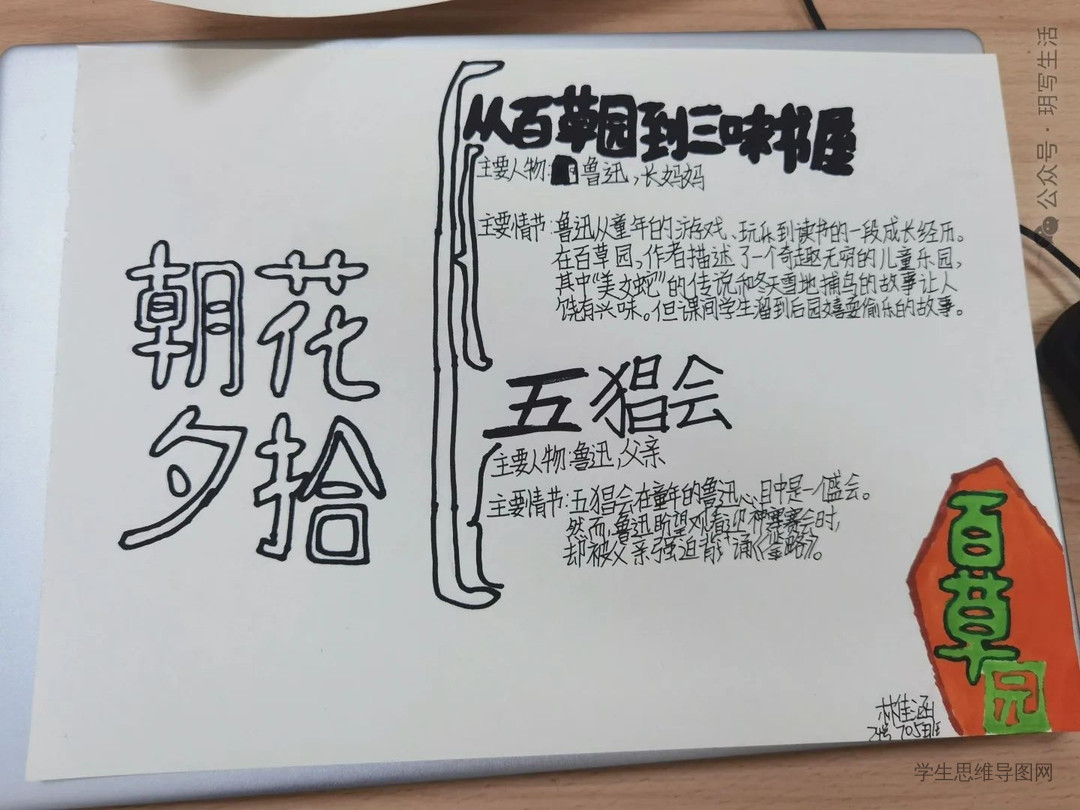 朝花
夕拾
从百草园到三味书屋
主要人物:鲁迅,长妈妈
主要情节:鲁迅从童年的游戏、玩乐到读书的一段成长经历。
在百草园,作者描述了一个奇趣无穷的儿童乐园,
其中“美女蛇”的传说和冬天雪地捕鸟的故事让人
饶有兴味。但课间学生溜到后园嬉耍偷乐的故事。
五猖会
主要人物:鲁迅,父亲
主要情节:五猖会在童年的鲁迅心目中是一个盛会。
然而,鲁迅盼望观看迎神赛会时,
却被父亲强迫背诵《鉴略》。
百草园
林佳涵
24号 705班
公众号·玥写生活
学生思维导图网